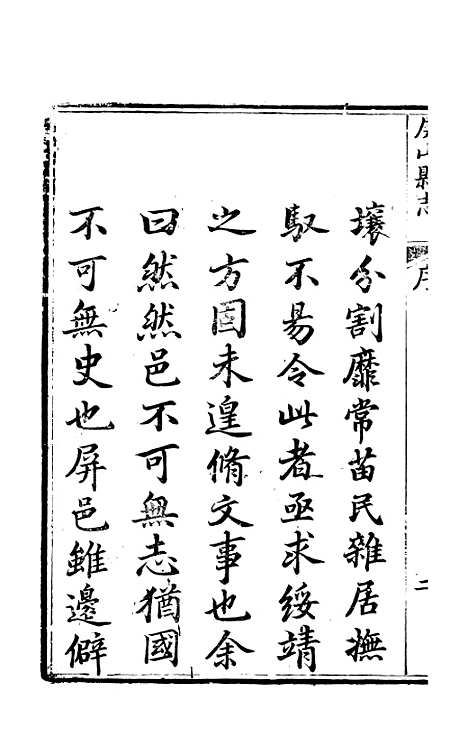 屏山縣志
序
二
壤分割靡常苗民雜居撫
馭不易令此者亟求綏靖
之方固未遑脩文事也余
曰然然邑不可無志猶國
不可無史也屏邑雖邊僻